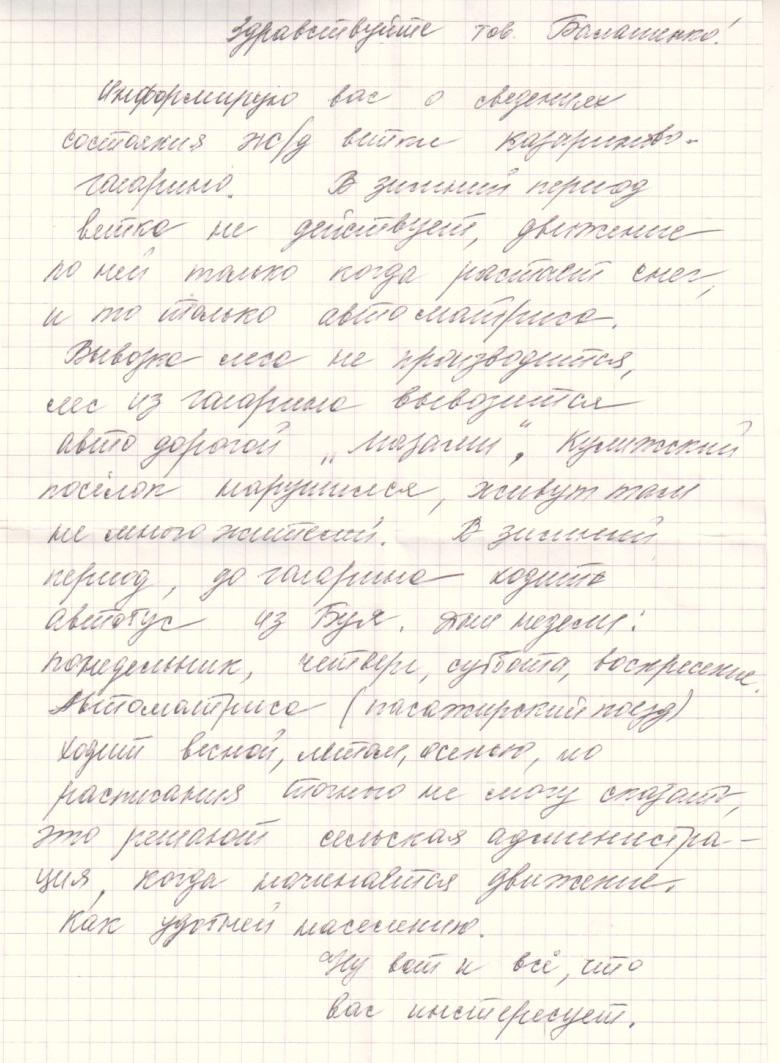 Здравствуйте тов. Балашенко!
Информирую вас о сведениях
состояния ж/д ветки казариново-
гагарино. В зимний период
ветка не действует, движение
по ней только когда растает снег,
и то только автоматриса.
Вывозка леса не производится,
лес из гагарино вывозится
авто дорогой „мазами". Кулижский
посёлок нарушился, живут там
не много жителей. В зимний
период, до гагарино ходит
автобус из Буя. Дни недели:
понедельник, четверг, суббота, воскресение.
Автоматриса (пасажирский поезд)
ходит весной, летом, осенью, но
расписания точно не могу сказать,
это решают сельская администра-
ция, когда начинается движение.
Как удобней населению.
Ну вот и всё, что
вас интересует.